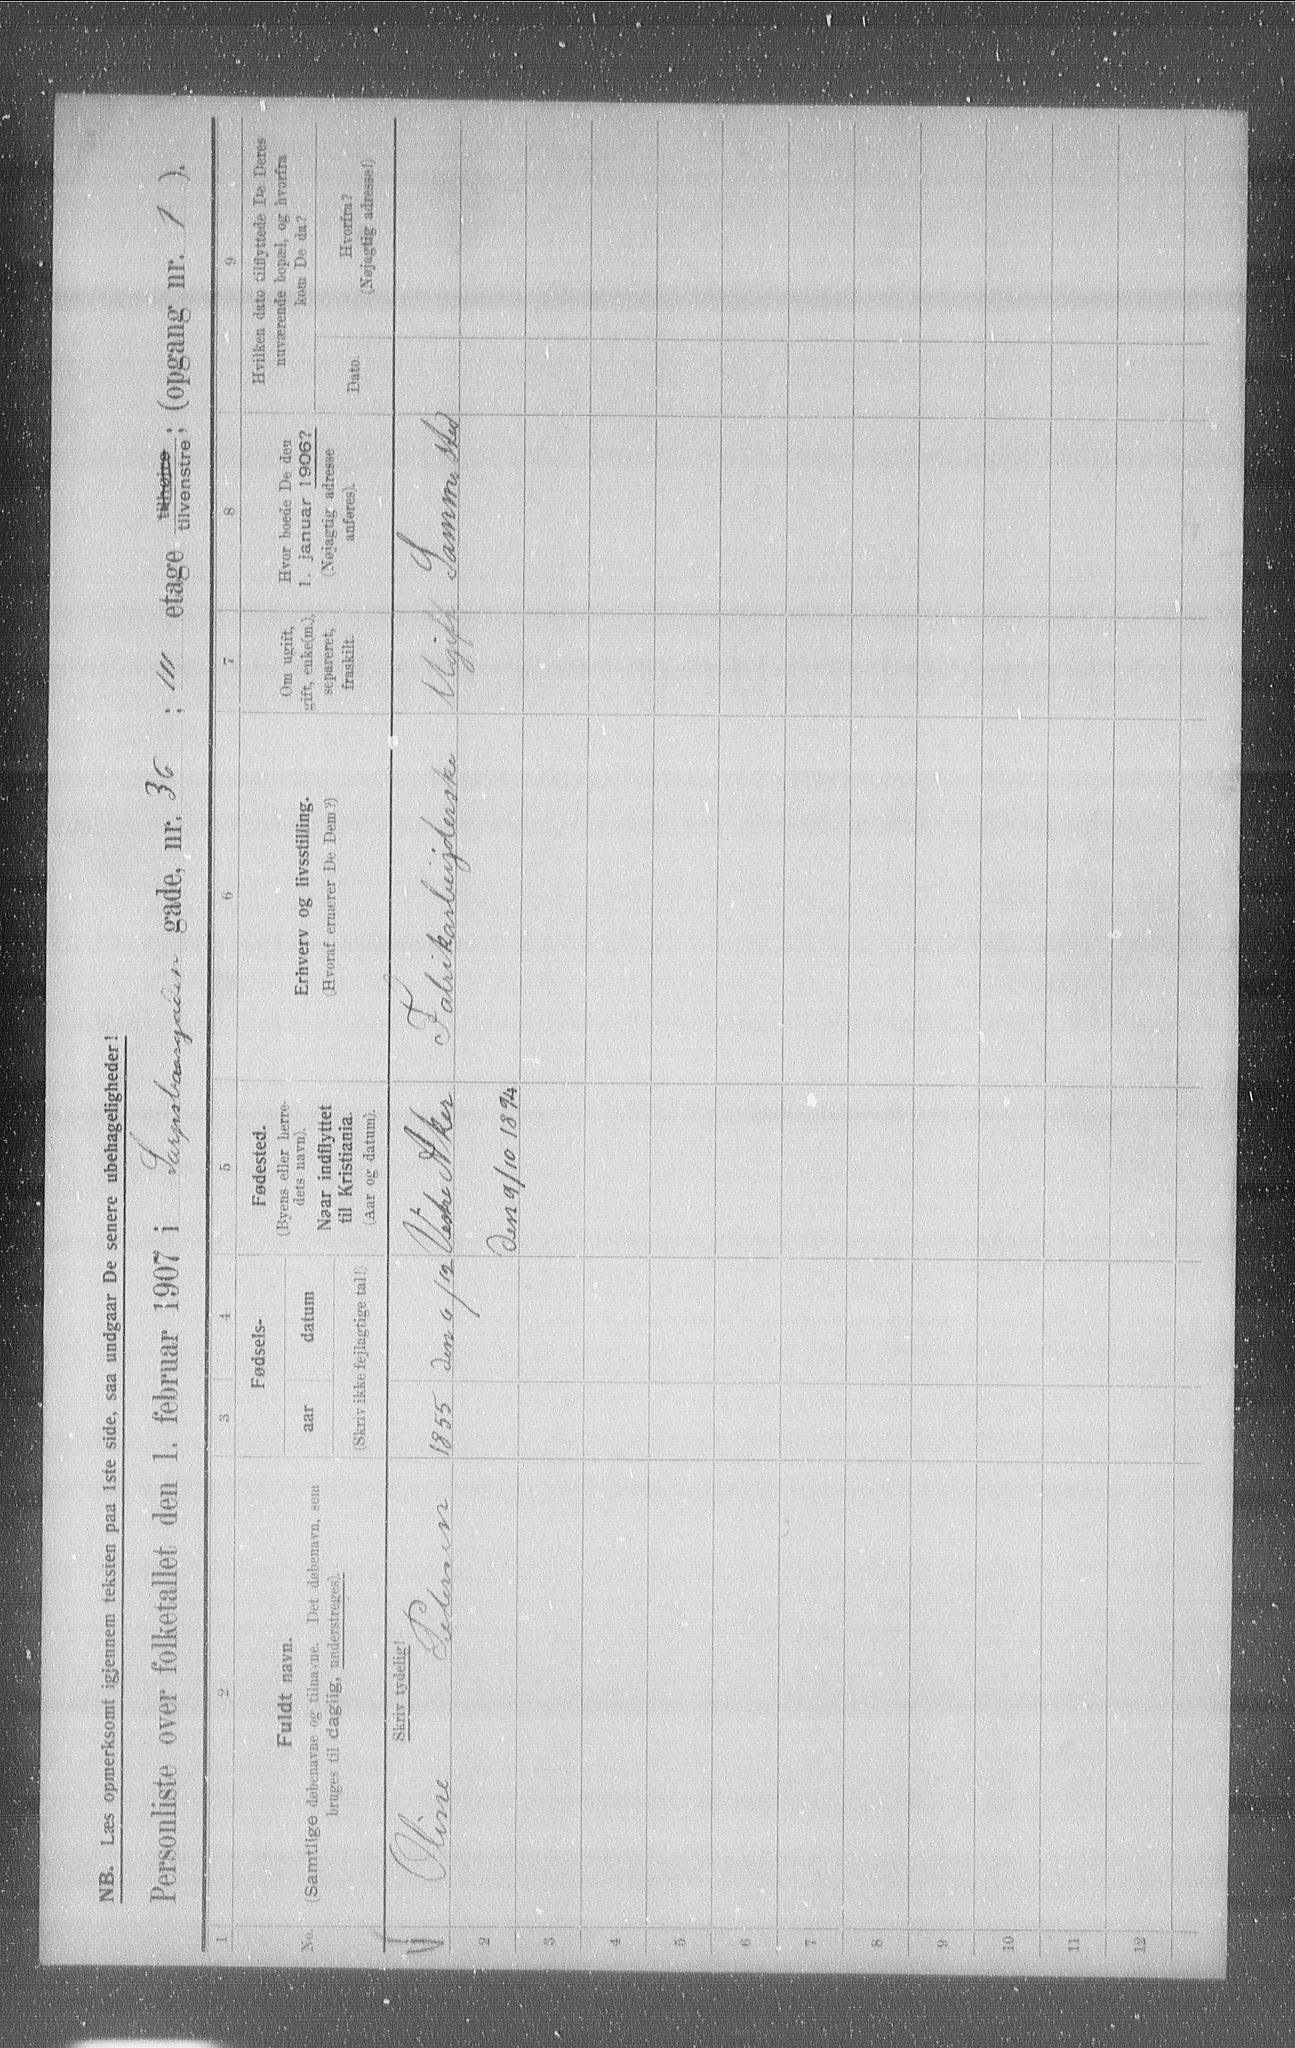 NB. Læs opmerksomt igjennem teksten paa 1ste side, saa undgaar De senere ubehageligheder!
Personliste over folketallet den 1. februar 1907 i Sarpsborggaden gade, nr. 36 ; III etage tilhøire tilvenstre ; (opgang nr. 1 ).
1 2 3 4 5 6 7 8 9
No.
Fuldt navn.
(Samtlige døbenavne og tilnavne. Det døbenavn, som
bruges til daglig, understreges).
Fødsels-
aar datum
(Skriv ikke fejlagtige tal!)
Fødested.
(Byens eller herre-
dets navn).
Naar indflyttet
til Kristiania.
(Aar og datum).
Erhverv og livsstilling.
(Hvoraf ernærer De Dem?)
Om ugift,
gift, enke(m.),
separeret,
fraskilt.
Hvor boede De den
1. januar 1906?
(Nøjagtig adresse
anføres).
Hvilken dato tilflyttede De Deres
nuværende bopæl, og hvorfra
kom De da?
Dato.
Hvorfra?
(Nøjagtig adresse!)
Skriv tydelig!
Oline Petersen 1855 den 6/12 Vestre Aker Fabrikarbeijderske Ugift Samme Sted
2 den 9/10 1894
3
4
5
6
7
8
9
10
11
12